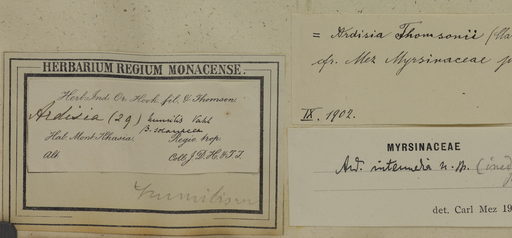 HERBARIUM REGIUM MONACENSE.
Herb. Ind. Or. Hook. fil. & Thomson
Ardisia (29) humilis Vahl
β.
Hab. Mont. Khasia Regio trop.
Alt. Coll. J.D.H. & T.T.
humilis
= Ardisia Thomsonii
cfr. Mez Myrsinaceae p
IX. 1902.
MYRSINACEAE
Ard. intermedia n. sp. (ined
det. Carl Mez 19